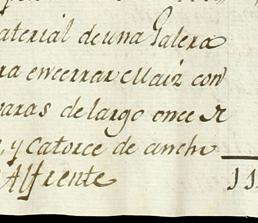 aterial de una Galera
ra encerrar Maiz con
varas de largo once
y catorce de ancho
Alfrente
11